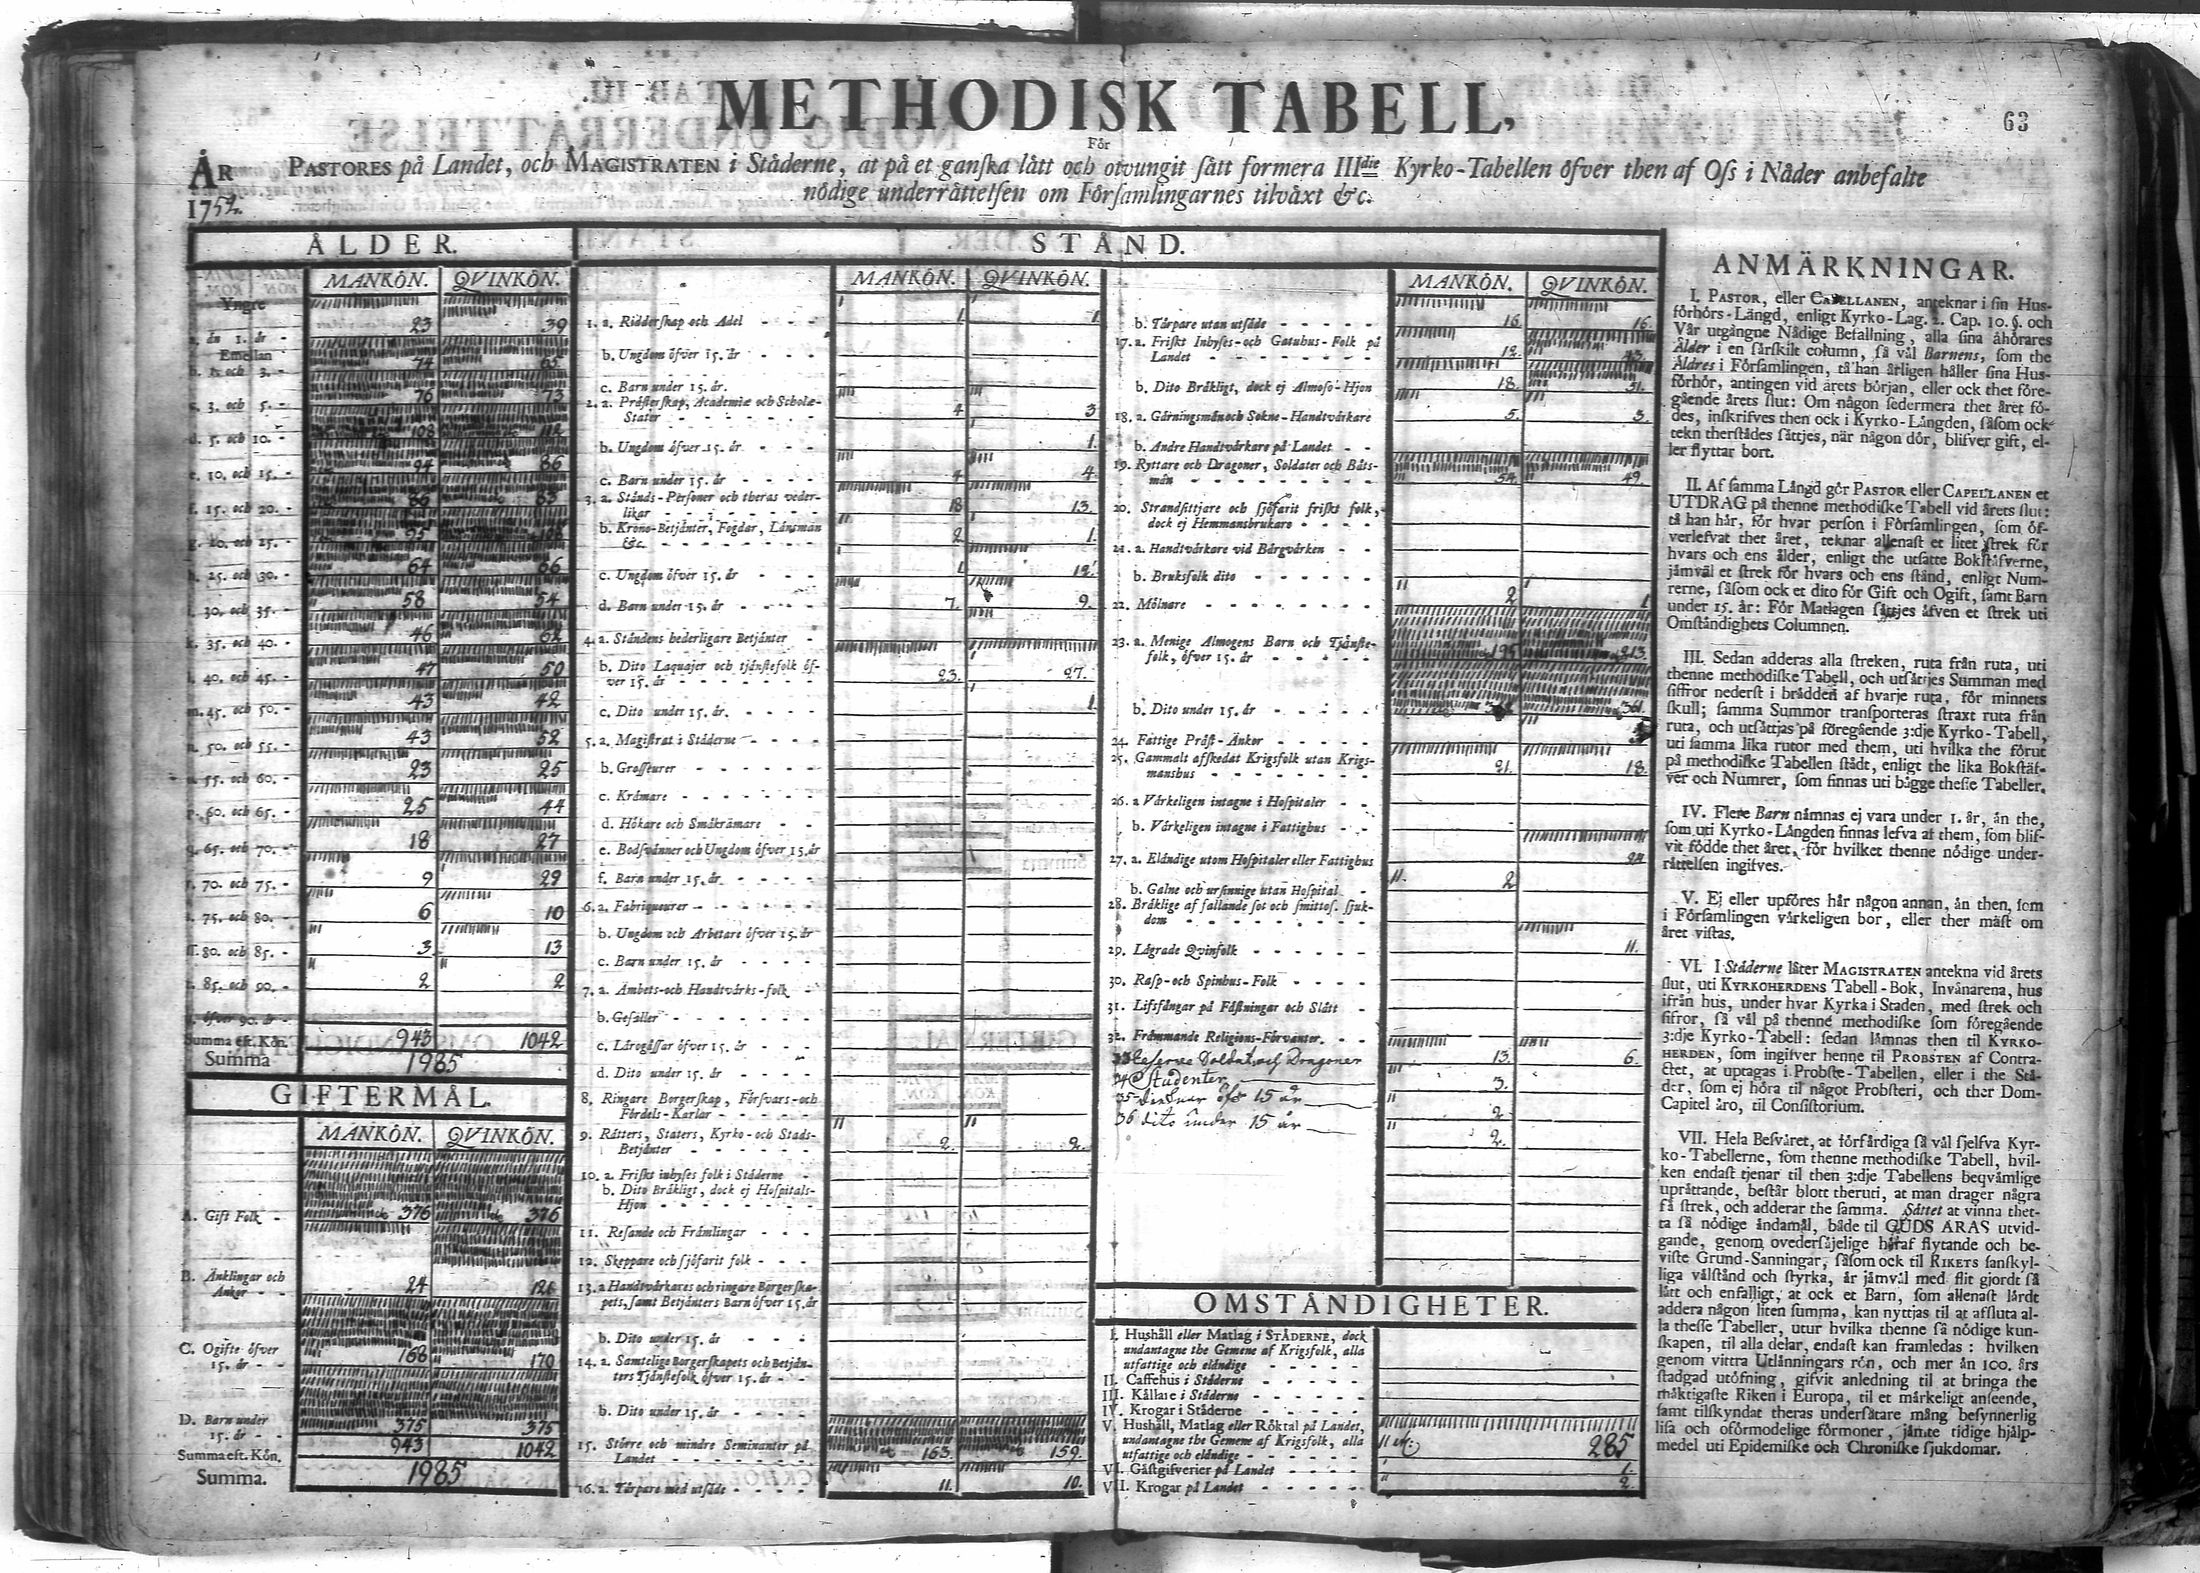 METHODISK TABELL,
63
För
ÅR PASTORES på Landet, och MAGISTRATEN i Städerne, at på et ganska lätt och otvungit sätt formera IIIdie Kyrko-Tabellen öfver then af Oss i Nåder anbefalte
1752. nödige underrättelsen om Församlingarnes tilväxt &c.
ÅLDER.
MANKÖN. QVINKÖN.
Yngre
än 1. år - 23 39
Emellan
b. 1. och 3. - 74 65
c. 3. och 5. - 76 73
d. 5. och 10. - 108 112
e. 10. och 15. - 94 86
f. 15. och 20. - 86 83
g. 20. och 25. - 95
h. 25. och 30. - 64 66
i. 30. och 35. - 58 54
k. 35. och 40. - 46 62
l. 40. och 45. - 47 50
m. 45. och 50. - 43 42
n. 50. och 55. - 43 52
o. 55. och 60. - 23 25
p. 60. och 65. - 25 44
q. 65. och 70. - 18 27
r. 70. och 75. - 9 29
s. 75. och 80. - 6 10
ſſ. 80. och 85. - 3 13
t. 85. och 90. - 2 2
u. öfver 90. år -
Summa eft. Kön. 943 1042
Summa 1985
GIFTERMÅL.
MANKÖN. QVINKÖN.
A. Gift Folk - 376 376
B. Änklingar och
Änkor - - 24 126
C. Ogifte öfver
15. år - - 168 170
D. Barn under
15. år - - 375 375
Summa eft. Kön. 943 1042
Summa. 1985
STÅND.
MANKÖN. QVINKÖN.
1. a. Ridderskap och Adel - - - 1 1
b. Ungdom öfver 15. år - - -
c. Barn under 15. år.
2. a. Prästerskap, Academiæ och Scholæ-
Stater - - - - 4 3
b. Ungdom öfver 15. år - - - 1.
c. Barn under 15. år - - - 4 4
3. a. Stånds-Personer och theras veder-
likar - - - - 18 13.
b. Krono-Betjänter, Fogdar, Länsmän
&c. - - - - 2 1.
c. Ungdom öfver 15. år - - - 1 12
d. Barn under 15. år - - - 7. 9.
4. a. Ståndens hederligare Betjänter -
b. Dito Laquajer och tjänstefolk öf-
ver 15. år - - - - 23. 27.
c. Dito under 15. år. - - - 1.
5. a. Magistrat i Städerne - - - -
b. Grosseurer - - - -
c. Krämare - - - -
d. Hökare och Småkrämare - -
e. Bodsvänner och Ungdom öfver 15. år
f. Barn under 15. år - - - -
6. a. Fabriqueurer - - - -
b. Ungdom och Arbetare öfver 15. år
c. Barn under 15. år - - - -
7. a. Ämbets-och Handtvärks-folk -
b. Gesäller - - - -
c. Lärogåssar öfver 15. år - - -
d. Dito under 15. år - - - -
8. Ringare Borgerskap, Försvars-och
Fördels-Karlar - - - -
9. Rätters, Staters, Kyrko-och Stads-
Betjänter - - - - 2. 2.
10. a. Friskt inhyses folk i Städerne -
b. Dito Bräkligt, dock ej Hospitals-
Hjon - - - -
11. Resande och Främlingar - - -
12. Skeppare och sjöfarit folk - -
13. a. Handtvärkares och ringare Borgerska-
pets, samt Betjänters Barn öfver 15. år
b. Dito under 15. år - - -
14. a. Samtelige Borgerskapets och Betjän-
ters Tjänstefolk öfver 15. år - -
b. Dito under 15. år - - -
15. Större och mindre Hemmanter på
Landet - - - - 163. 159.
16. a. Torpare med utsäde - - - - 11. 10.
MANKÖN. QVINKÖN.
b. Torpare utan utsäde - - - - 16. 16.
17. a. Friskt Inhyses-och Gatuhus-Folk på
Landet - - - - 12. 43.
b. Dito Bräkligt, dock ej Almoso-Hjon 18. 51.
18. a. Gärningsmän och Sokne-Handtvärkare 5. 3.
b. Andre Handtvärkare på Landet - -
19. Ryttare och Dragoner, Soldater och Båts-
män - - - - 54. 49.
20. Strandsittjare och sjöfarit friskt folk,
dock ej Hemmansbrukare - - - -
21. a. Handtvärkare vid Bärgvärken - -
b. Bruksfolk dito - - - -
22. Mölnare - - - - 2 1
23. a. Menige Almogens Barn och Tjänste-
folk, öfver 15. år - - - - 195 213.
b. Dito under 15. år - - - - 361.
24. Fattige Präst-Änkor - - - -
25. Gammalt afskedat Krigsfolk utan Krigs-
manshus - - - - 21. 18.
26. a Värkeligen intagne i Hospitaler - -
b. Värkeligen intagne i Fattighus - -
27. a. Eländige utom Hospitaler eller Fattighus 24.
b. Galne och ursinnige utan Hospital - 2
28. Bräklige af fallande sot och smittos. sjuk-
dom - - - -
29. Lägrade Qvinfolk - - - - 11.
30. Rasp-och Spinhus-Folk - - -
31. Lifsfångar på Fästningar och Slått -
32. Främmande Religions-Förvanter. - -
33 Reserve Soldat. och Dragoner 13. 6.
34 Studenter 3.
35 Disknar öfv 15 år 2
36 dito under 15 år 2.
OMSTÄNDIGHETER.
I. Hushåll eller Matlag i STÄDERNE, dock
undantagne the Gemene af Krigsfolk, alla
utfattige och eländige - - - -
II. Caffehus i Städerne - - - -
III. Källare i Städerne - - - -
IV. Krogar i Städerne - - - -
V. Hushåll, Matlag eller Röktal på Landet,
undantagne the Gemene af Krigsfolk, alla 285
utfattige och eländige - - - -
VI. Gästgifverier på Landet - - - - 1.
VII. Krogar på Landet - - - - 2.
ANMÄRKNINGAR.
I. PASTOR, eller CAPELLANEN, anteknar i sin Hus-
förhörs-Längd, enligt Kyrko-Lag. 2. Cap. 10. §. och
Vår utgångne Nådige Befallning, alla sina åhörares
Ålder i en särskilt column, så väl Barnens, som the
Äldres i Församlingen, tå han årligen håller sina Hus-
förhör, antingen vid årets början, eller ock thet före-
gående årets slut: Om någon sedermera thet året fö-
des, inskrifves then ock i Kyrko-Längden, såsom ock
tekn therstädes sättjes, när någon dör, blifver gift, el-
ler flyttar bort.
II. Af samma Längd gör PASTOR eller CAPELLANEN et
UTDRAG på thenne methodiske Tabell vid årets slut:
tå han här, för hvar person i Församlingen, som öf-
verlefvat thet året, teknar allenast et litet strek för
hvars och ens ålder, enligt the utsatte Bokstäfverne,
jämväl et strek för hvars och ens stånd, enligt Num-
rerne, såsom ock et dito för Gift och Ogift, samt Barn
under 15. år: För Matlagen sättjes äfven et strek uti
Omständighets Columnen.
III. Sedan adderas alla streken, ruta från ruta, uti
thenne methodiske Tabell, och utsättjes Summan med
siffror nederst i brädden af hvarje ruta, för minnets
skull; samma Summor transporteras straxt ruta från
ruta, och utsättjas på föregående 3:dje Kyrko-Tabell,
uti samma lika rutor med them, uti hvilka the förut
på methodiske Tabellen stådt, enligt the lika Bokstäf-
ver och Numrer, som finnas uti bägge thesse Tabeller.
IV. Flere Barn nämnas ej vara under 1. år, än the,
som uti Kyrko-Längden finnas lefva af them, som blif-
vit födde thet året, för hvilket thenne nödige under-
rättelsen ingifves.
V. Ej eller upföres här någon annan, än then, som
i Församlingen värkeligen bor, eller ther mäst om
året vistas.
VI. I Städerne låter MAGISTRATEN antekna vid årets
slut, uti KYRKOHERDENS Tabell-Bok, Invånarena, hus
ifrån hus, under hvar Kyrka i Staden, med strek och
sifror, så väl på thenne methodiske som föregående
3:dje Kyrko-Tabell: sedan lämnas then til KYRKO-
HERDEN, som ingifver henne til PROBSTEN af Contra-
ctet, at uptagas i Probste-Tabellen, eller i the Stä-
der, som ej höra til något Probsteri, och ther Dom-
Capitel äro, til Consistorium.
VII. Hela Besväret, at förfärdiga så väl sjelfva Kyr-
ko-Tabellerne, som thenne methodiske Tabell, hvil-
ken endast tjenar til then 3:dje Tabellens beqvämlige
uprättande, består blott theruti, at man drager några
få strek, och adderar the samma. Sättet at vinna thet-
ta så nödige ändamål, både til GUDS ÄRAS utvid-
gande, genom ovedersäjelige häraf flytande och be-
viste Grund-Sanningar, såsom ock til RIKETS sanskyl-
liga välstånd och styrka, är jämväl med flit gjordt så
lätt och enfalligt, at ock et Barn, som allenast lärdt
addera någon liten summa, kan nyttjas til at afsluta al-
la thesse Tabeller, utur hvilka thenne så nödige kun-
skapen, til alla delar, endast kan framledas: hvilken
genom vittra Utlänningars rön, och mer än 100. års
stadgad utöfning, gifvit anledning til at bringa the
mäktigaste Riken i Europa, til et märkeligt anseende,
samt tilskyndat theras undersåtare mång besynnerlig
lisa och oförmodelige förmoner, jämte tidige hjälp-
medel uti Epidemiske och Chroniske sjukdomar.